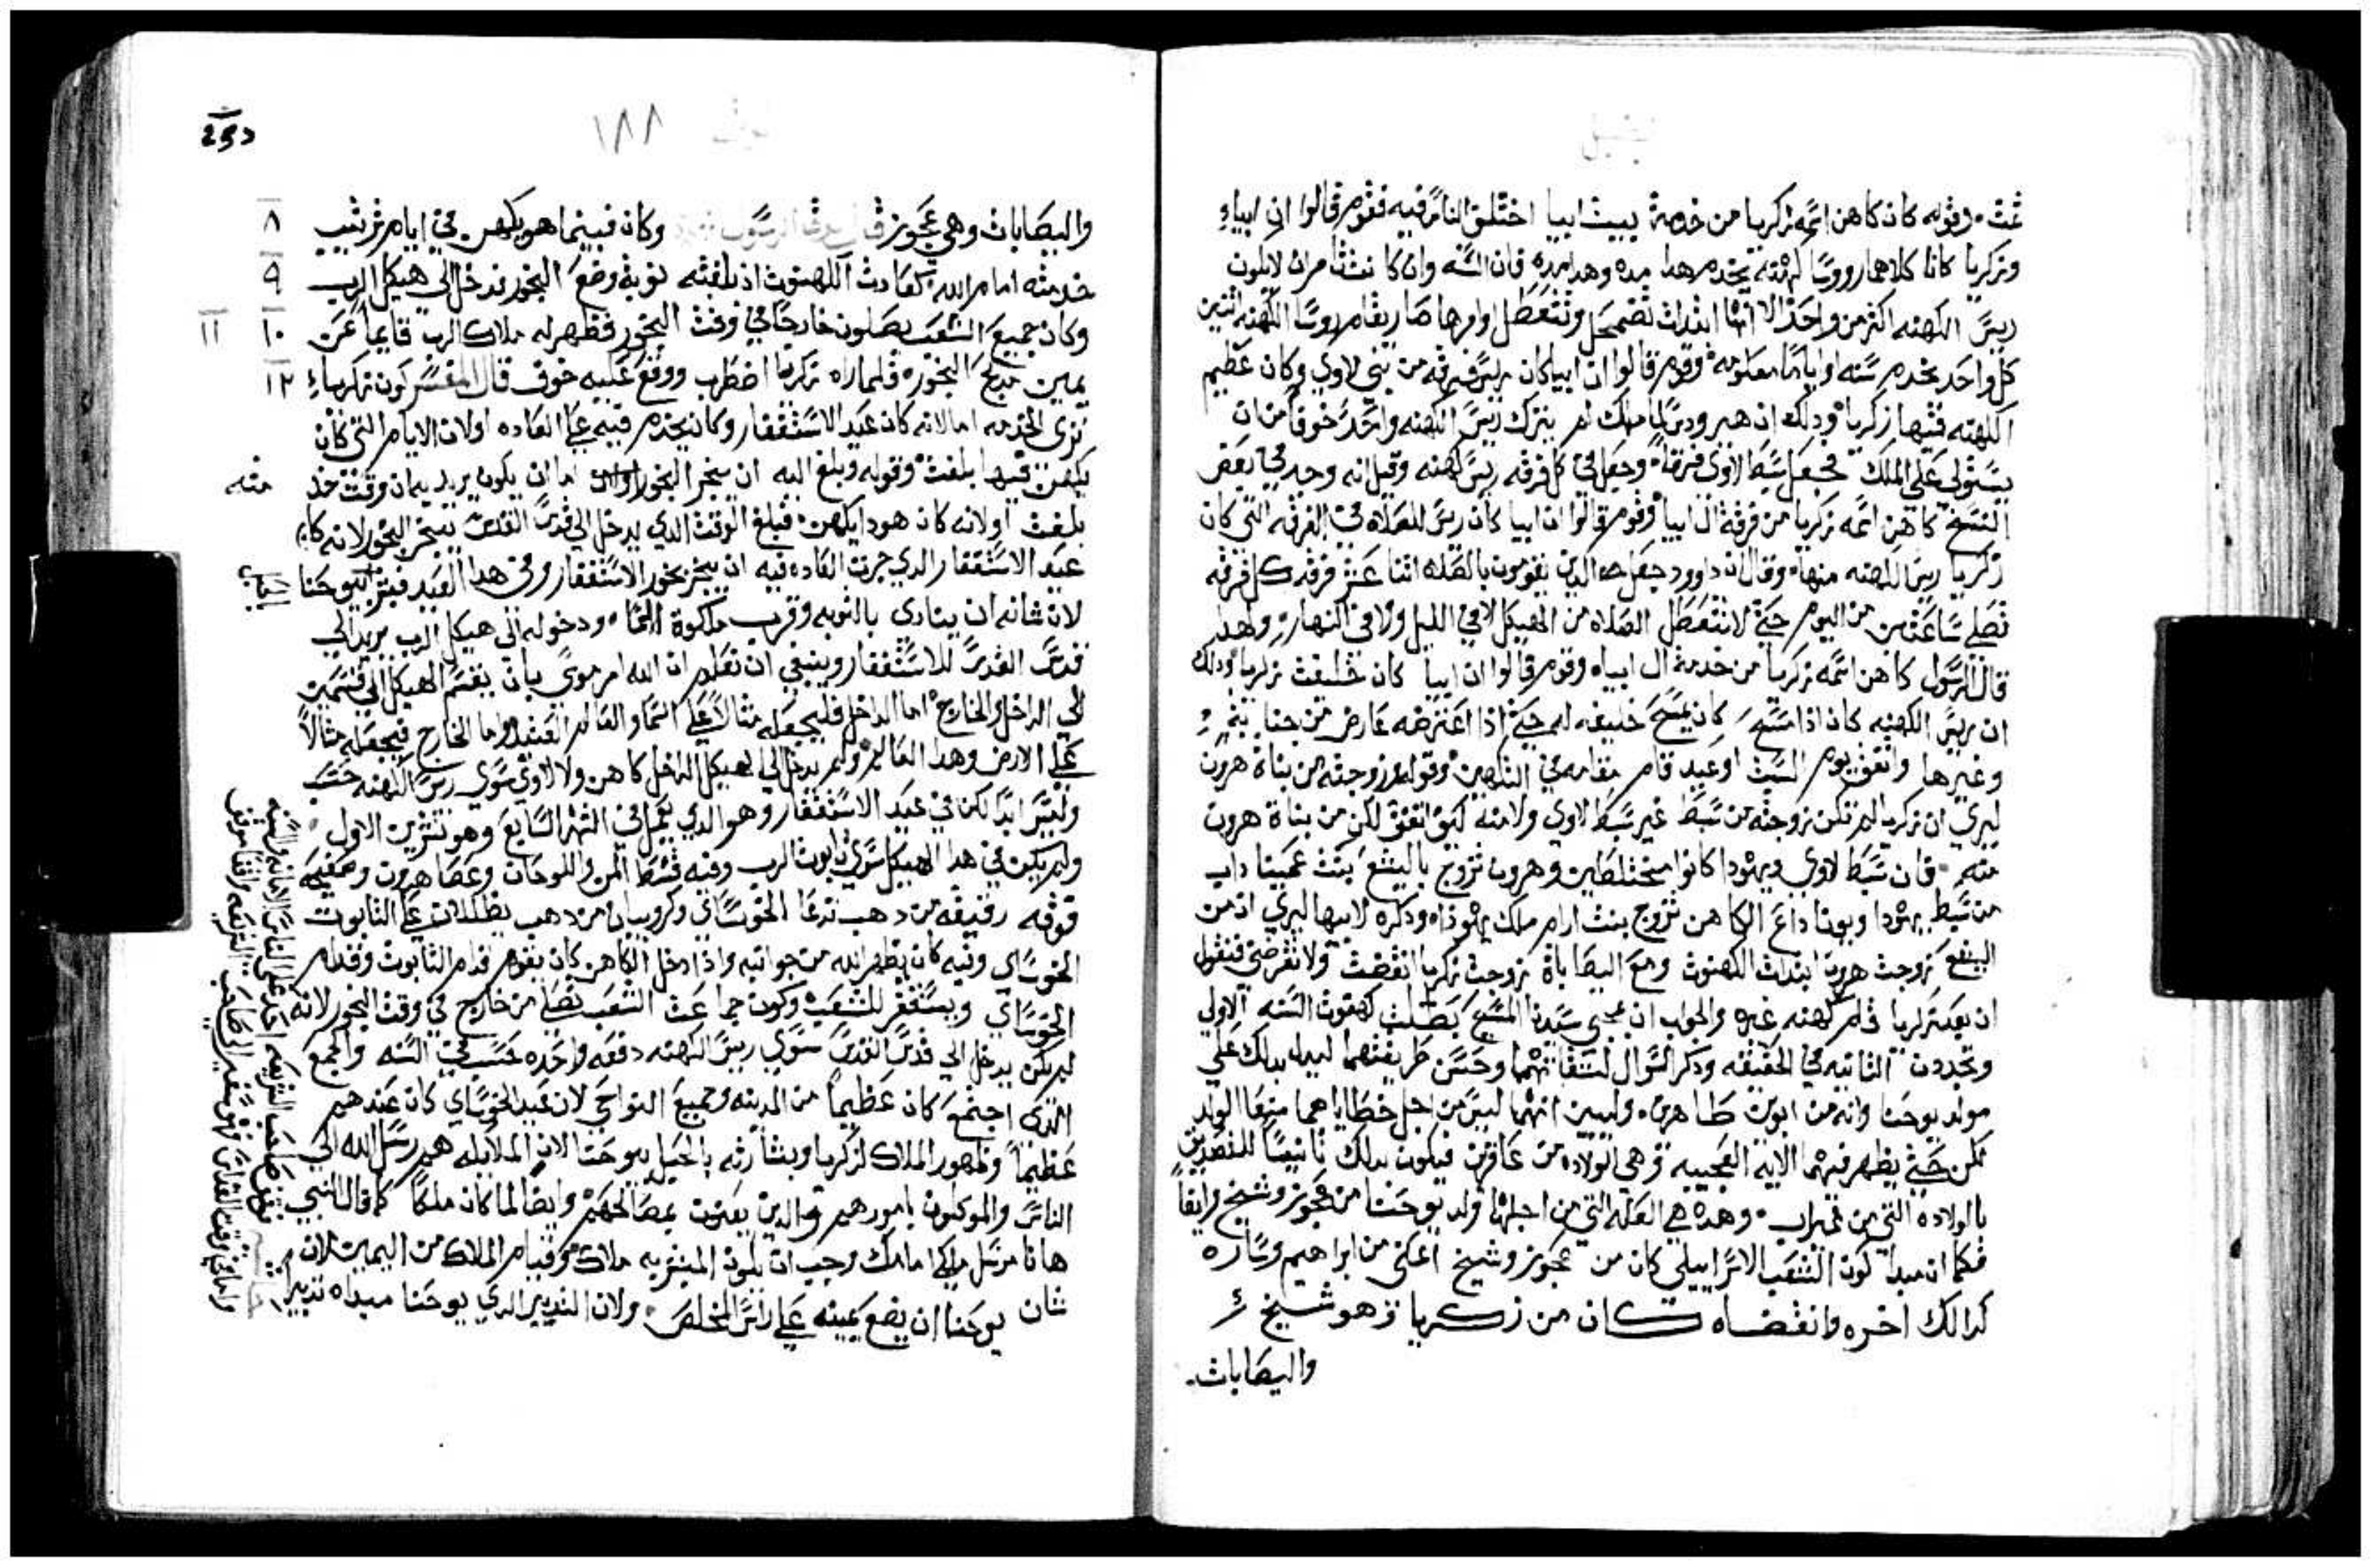 عنت. وقوله كان كاهن اسمه زكريا من خدمة بيت ابيا اختلق الناس فيه فقوم قالوا ان ابياء
وزكريا كانا كلاهما رووسا كهنه يخدم هدا مده وهدا مده فان السنه وان كانت تامر ان لا يكون
رييس الكهنه اكثر من واحد الا انها ابتدات تضمحل وتتعطل وامرها صار يقام رووسا الكهنه اتنين
كل واحد يخدم سنه او اياما معلومه وقوم قالوا ان ابيا كان رييس فرقه من بني لاوي وكان عظيم
الكهنه فيها زكريا ودلك ان هيرودس لما ملك لم يترك رييس الكهنه واحد خوفا من ان
يستولي علي الملك فجعل سبط لاوي فرقا وجعل في كل فرقه رييس كهنه وقيل انه وجد في بعض
النسخ كاهن اسمه زكريا من فرقة ال ابيا وقوم قالوا ان ابيا كان رييس للصلاه في الفرقه التي كان
زكريا رييس الكهنه منها وقال ان داوود جعل الدين يقومون بالصلاه اتنا عشر فرقه كل فرقه
تصلي ساعتين من اليوم حتي لا تتعطل الصلاه من الهيكل لا في الليل ولا في النهار ولهدا
قال الرسول كاهن اسمه زكريا من خدمة ال ابياه وقوم قالوا ان ابيا كان خليفت زكريا ودلك
ان رييس الكهنه كان اذا مسح كان يمسح خليفه له حتي اذا اعترضه عارض من جنابه
وغيرها واتفق يوم السبت او عيد قام مقامه في التكهين وقوله وزوجته من بناة هرون
ليري ان زكريا لم تكن زوجته من سبط غير سبط لاوي ولا منه كيف اتفق لكن من بناة هرون
منه فان سبط لاوي ويهودا كانوا مختلطين وهرون تزوج باليشع بنت عميناداب
من سبط يهودا ويوياداع الكاهن تزوج بنت ارام ملك يهوداه ودكره لاسمها ليري ان من
اليشع زوجت هرون ابتدات الكهنوت ومع اليصاباة زوجت زكريا انقضت ولا تفرضن فنقول
ان بعد زكريا قام كهنه غيره والجواب ان بمجي سيدنا المسيح بطلت كهنوت السنه الاولي
وتجددت التانيه في الحقيقه ودكر السوال لشقايهما وحسن طريقتهما ليدل بدلك علي
مولد يوحنا وانه من ابوين طاهرين. وليبين انهما ليس من اجل خطاياهما منعا الولد
لكن حتي يظهر فيهما الايه العجيبه وهي الولاده من عاقرين فيكون بدلك تانيسا للتصديق
بالولاده التي من غير اب. وهده هي العله التي من اجلها ولد يوحنا من عجوز وشيخ وايضا
فكما ان مبدا كون الشعب الاسراييلي كان من عجوز وشيخ اعني من ابراهيم وساره
كدالك اخره وانقضاه كان من زكريا وهو شيخ
واليصابات.
١٨٨
واليصابات وهي عجوز قال لوقا الرسول وكان فبينما هو يكهن في ايام ترتيب ٨
خدمته امام الله كعادت الكهنوت اذ بلغته نوبة وضع البخور فدخل الي هيكل الرب ٩
وكان جميع الشعب يصلون خارجا في وقت البخور فظهر له ملاك الرب قايما عن ١٠ ١١
يمين مدبح البخور فلما راه زكريا اضطرب ووقع عليه خوف قال المفسر كون زكرياء ١٢
تري الخدمه اما لانه كان عيد الاستغفار وكان يخدم فيه علي العاده او لان الايام التي كان
يكهن فيها بلغت وقوله وبلغ اليه ان يبخر البخور اما ان يكون يريد به ان وقت خد منه
بلغت او لانه كان هودا يكهن. فبلغ الوقت الدي يدخل الي قدس القدس يبخر البخور لانه كان
عيد الاستغفار الدي جرت العاده فيه ان يبخر بخور الاستغفار وفي هدا العيد بشر بيوحنا
لان شانه ان ينادي بالتوبه وقرب ملكوة السما. ودخوله الي هيكل الرب يريد الي
قدس القدس للاستغفار وينبغي ان تعلم ان الله امر موسي بان يقسم الهيكل الي قسمين
الي الداخل والخارج اما الداخل فليجعله مثالا علي السما والعالم العتيد واما الخارج فيجعله مثالا
علي الارض وهدا العالم ولم يدخل الي الهيكل الداخل كاهن ولا لاوي سوي رييس الكهنه حسب
وليس ابدا لكن في عيد الاستغفار وهو الدي يعمل في الشهر السابع وهو تشرين الاول
ولم يكن في هدا الهيكل سوي تابوت الرب وفيه قسط المن واللوحان وعصا هرون وصفيحه
فوقه رقيقه من دهب تدعا الحوساي وكروبيان من دهب يظللان علي التابوت
الحوساي وفيه كان يظهر الله من جوانبه واذا دخل الكاهن كان يقوم قدام التابوت وقدام
الحوساي ويستغفر للشعب وكون جماعت الشعب تصلي من خارج في وقت البخور لانه
لم يكن يدخل الي قدس القدس سوي رييس الكهنه دفعه واحده حسب في السنه والجمع
الدي اجتمع كان عظيما من المدينه وجميع النواحي لان عيد الحوساي كان عندهم
عظيما وظهور الملاك لزكريا وبشارته بالحبل بيوحنا لان الملايكه هم رسل الله الي
الناس والموكلون بامورهم والدين يعنون بمصالحهم وايضا لما كان ملكا كما قال النبي
هانا مرسل ملاكي امامك وجب ان يكون المبشر به ملاك وقيام الملاك من اليمين لان
شان يوحنا ان يضع يمينه علي راس المخلص. ولان التدبير الدي يوحنا مبداه تدبيرا